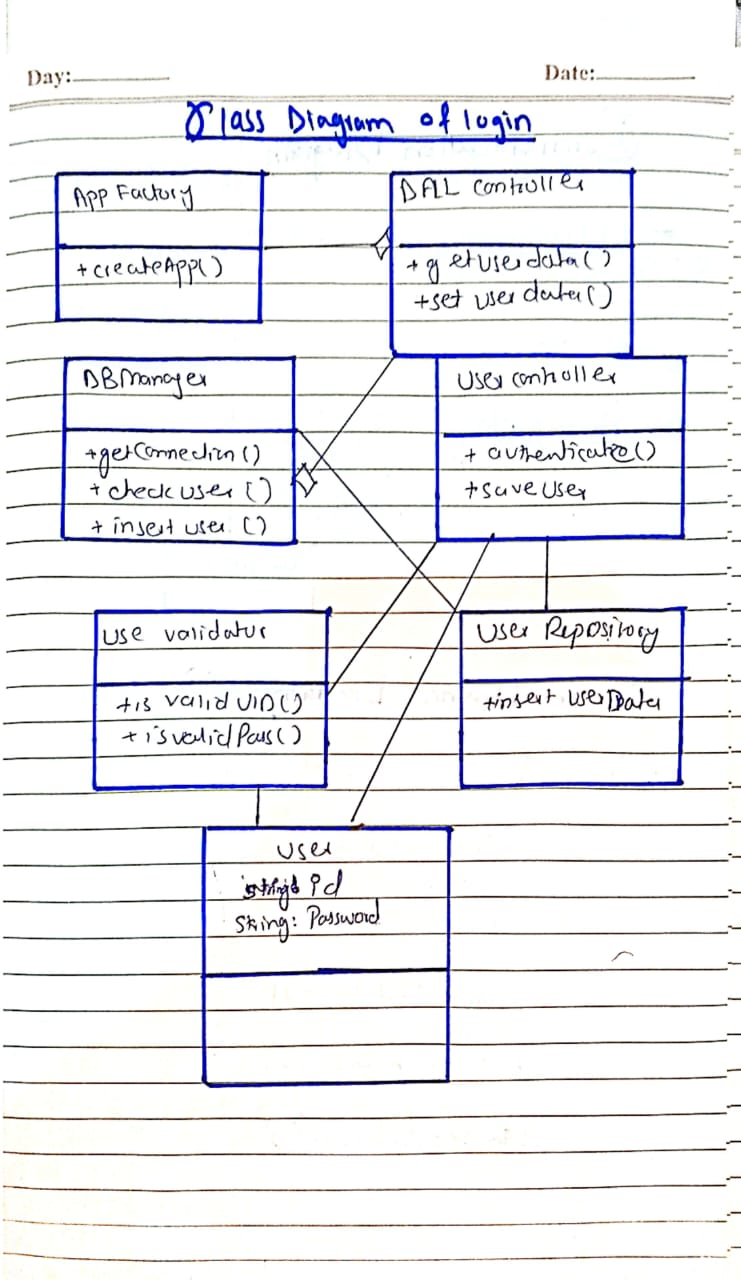 Day:
Date:
Class Diagram of login
App Factory
+createApp()
DAL controller
+getuserdata()
+set user data()
DBManager
+getConnection()
+check user ()
+insert user ()
User controller
+ authenticate()
+save User
Use validator
+is valid UID()
+isvalidPass()
User Repository
+insert userData
User
id
String: Password